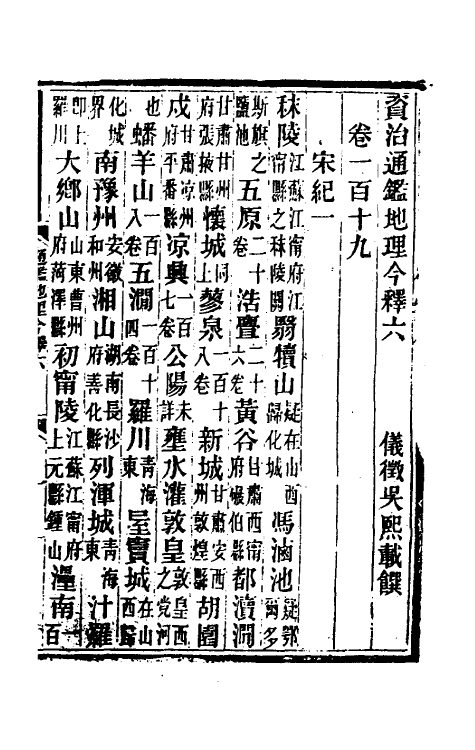 資治通鑑地理今釋六 儀徵吳熙載饌
卷一百十九
宋紀一
秣陵江蘇江甯府江甯縣之秣陵關翳犢山疑在山西歸化城馮滷池疑鄂爾多
斯旗之鹽池五原二十卷浩亹二十六卷黃谷甘肅西甯府碾伯縣都瀆澗
甘肅甘州府張掖縣懷城同上蓼泉一百十八卷新城甘肅安西州敦煌縣胡園
戍甘肅涼州府平番縣涼興一百七卷公陽未詳壅水灌敦皇敦皇西之党河
也蟠羊山一百八卷五澗一百十四卷羅川青海東在山西
化城界南豫州安徽和州湘山湖南長沙府善化縣列渾城青海東汁羅
即上羅川大鄉山山東曹州府菏澤縣初甯陵江蘇江甯府上元縣鍾山南一百
通鑑地理今釋六